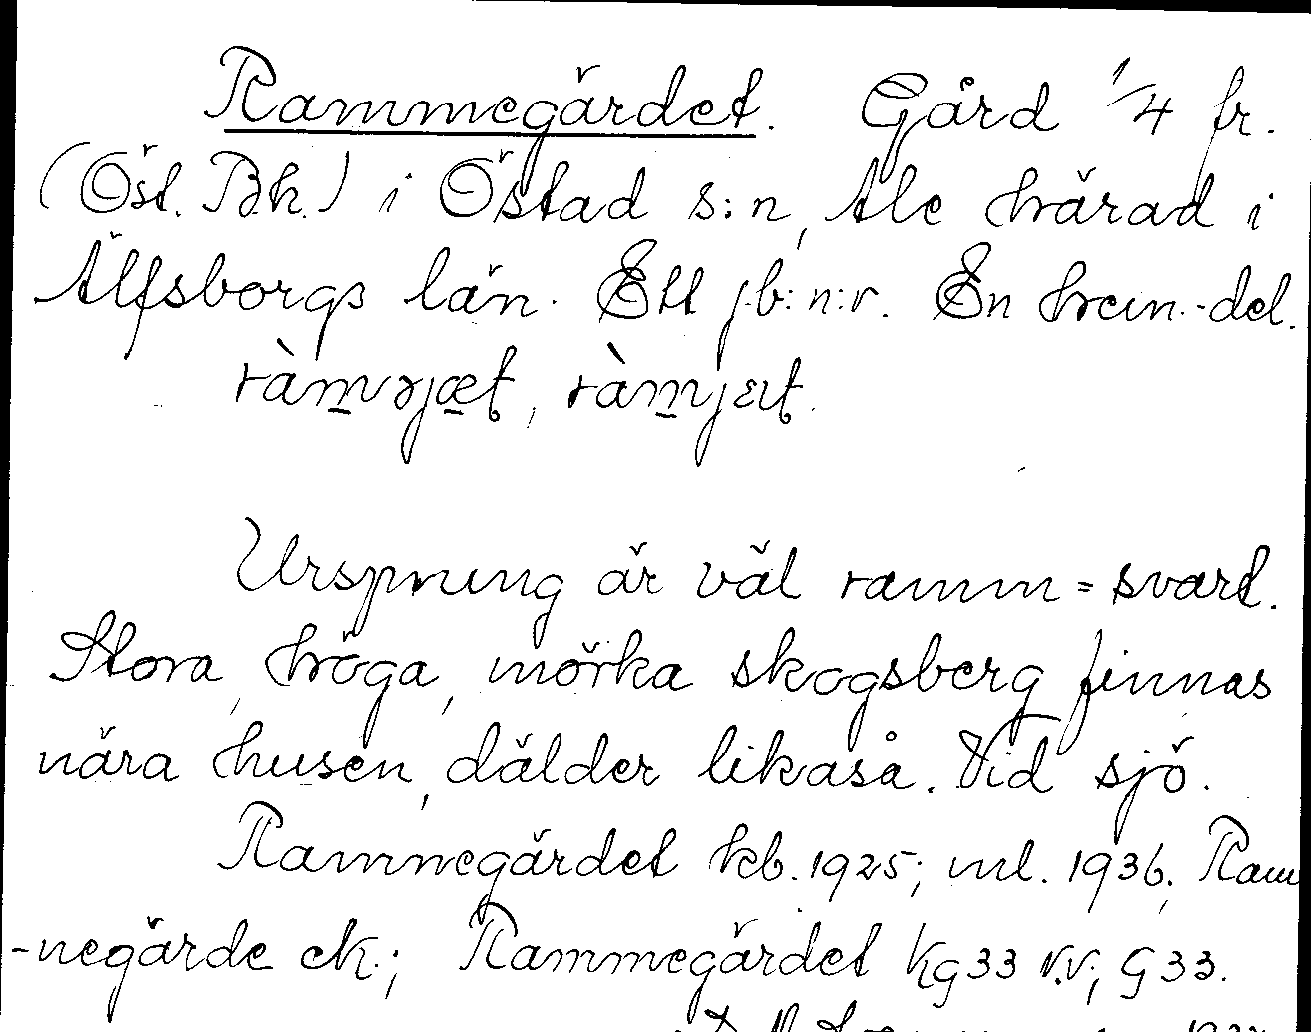 Rammegärdet. Gård 1/4 fr.
(Öst. Bk.) i Östad s:n, Ale härad i
Älfsborgs län. Ett j.b:n:r. En hem.-del.
ràmvəjæt, ràmjɛt.
Ursprung är väl ramm = svart.
Stora, höga, mörka skogsberg finnas
nära husen, dälder likaså. Vid sjö.
Ramnegärdet kb. 1925; ml. 1936; Ram
-negärde ek.; Rammegärdet Kg33 v.v; G33.